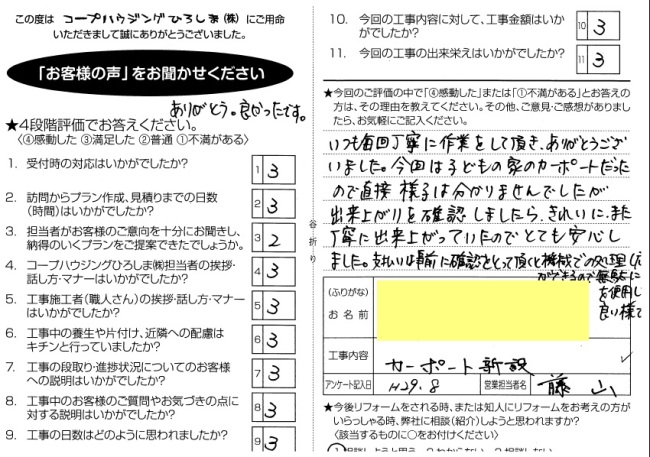 この度は コープハウジングひろしま(株) にご用命
いただきまして誠にありがとうございました。
「お客様の声」をお聞かせください
ありがとう。良かったです。
★4段階評価でお答えください。
〈④感動した ③満足した ②普通 ①不満がある〉
1. 受付時の対応はいかがでしたか?
1 3
2. 訪問からプラン作成、見積りまでの日数
(時間)はいかがでしたか?
2 3
3. 担当者がお客様のご意向を十分にお聞きし、
納得のいくプランをご提案できたでしょうか。
3 2
4. コープハウジングひろしま㈱担当者の挨拶・
話し方・マナーはいかがでしたか?
4 3
5. 工事施工者(職人さん)の挨拶・話し方・マナー
はいかがでしたか?
5 3
6. 工事中の養生や片付け、近隣への配慮は
キチンと行っていましたか?
6 3
7. 工事の段取り・進捗状況についてのお客様
への説明はいかがでしたか?
7 3
8. 工事中のお客様のご質問やお気づきの点に
対する説明はいかがでしたか?
8 3
9. 工事の日数はどのように思われましたか?
9 3
谷折り
10. 今回の工事内容に対して、工事金額はいか
がでしたか?
10 3
11. 今回の工事の出来栄えはいかがでしたか?
11 3
★今回のご評価の中で「④感動した」または「①不満がある」とお答え
の方は、その理由を教えてください。その他、ご意見・ご感想がありまし
たら、お気軽にご記入ください。
いつも毎回丁寧に作業をして頂き、ありがとうござ
いました。今回は子どもの家のカーポートだった
ので直接 様子は分かりませんでしたが
出来上がりを確認しましたら、きれいに、また
丁寧に出来上がっていたのでとても安心し
ました。支払いは事前に確認をとって頂くと機械での処理
ができるので無駄に
を使用し
良い様で
(ふりがな)
お名前
工事内容
カーポート新設
アンケート記入日
H29.8
営業担当者名
藤山
★今後リフォームをされる時、または知人にリフォームをお考えの方が
いらっしゃる時、弊社に相談(紹介)しようと思いますか?
〈該当するものに○をお付けください〉
1 相談しようと思う 2 わからない 3 相談しない